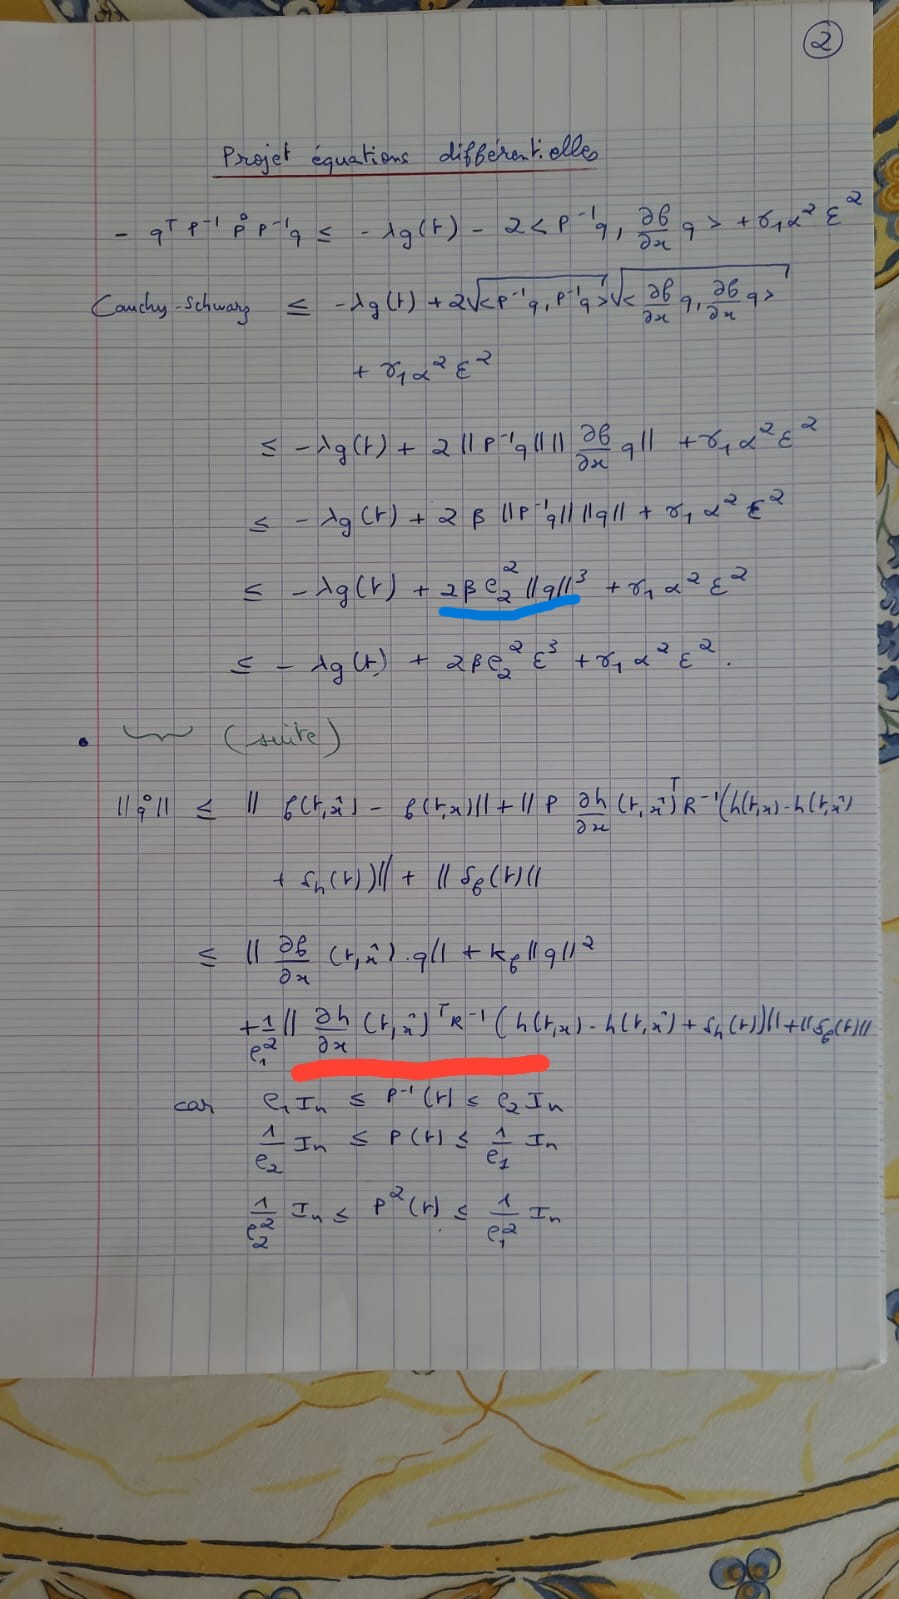 ②
Projet équations différentielles
- qᵀ P⁻¹ P̊ P⁻¹q ≤ -λg(t) - 2<P⁻¹q, ∂f/∂x q> + γ₁α²ε²
Cauchy-Schwarz ≤ -λg(t) + 2√<P⁻¹q, P⁻¹q> √<∂f/∂x q, ∂f/∂x q>
+ γ₁α²ε²
≤ -λg(t) + 2||P⁻¹q|| ||∂f/∂x q|| + γ₁α²ε²
≤ -λg(t) + 2β ||P⁻¹q|| ||q|| + γ₁α²ε²
≤ -λg(t) + 2βρ₂²||q||³ + γ₁α²ε²
≤ -λg(t) + 2βρ₂²ε³ + γ₁α²ε².
• (suite)
||q̊|| ≤ ||f(t,x̂) - f(t,x)|| + ||P ∂h/∂x (t,x̂)ᵀ R⁻¹(h(t,x) - h(t,x̂)
+ δh(t))|| + ||δf(t)||
≤ ||∂f/∂x (t,x̂).q|| + kf||q||²
+ 1/ρ₁² ||∂h/∂x (t,x̂)ᵀR⁻¹(h(t,x) - h(t,x̂) + δh(t))|| + ||δf(t)||
car ρ₁In ≤ P⁻¹(t) ≤ ρ₂In
1/ρ₂ In ≤ P(t) ≤ 1/ρ₁ In
1/ρ₂² In ≤ P²(t) ≤ 1/ρ₁² In